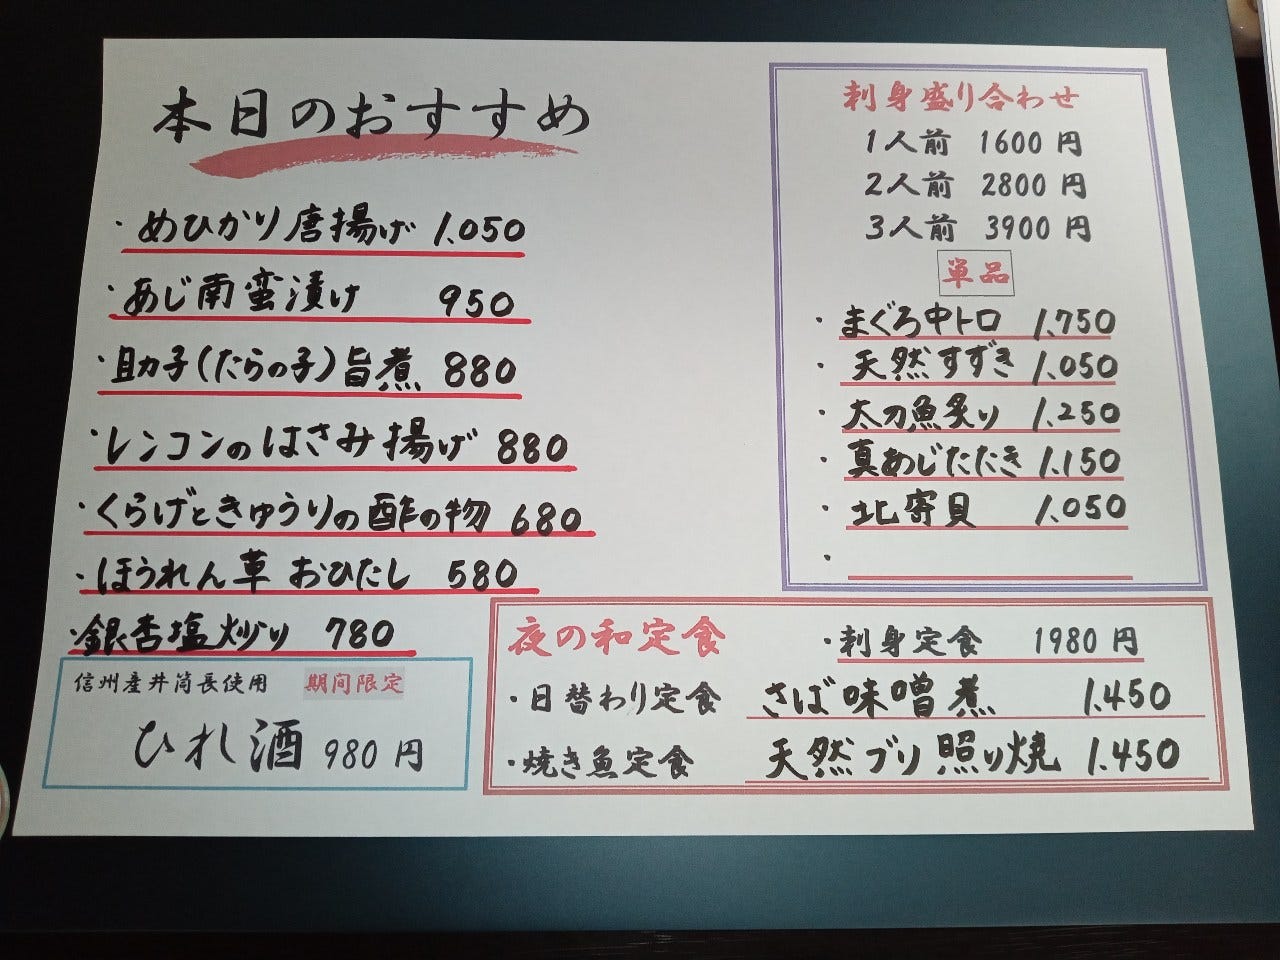 本日のおすすめ
・めひかり唐揚げ 1.050
・あじ南蛮漬け 950
・助子(たらの子)旨煮 880
・レンコンのはさみ揚げ 880
・くらげときゅうりの酢の物 680
・ほうれん草 おひたし 580
・銀杏塩炒り 780
信州産井筒長使用 期間限定
ひれ酒 980円
刺身盛り合わせ
1人前 1600円
2人前 2800円
3人前 3900円
単品
・まぐろ中トロ 1.750
・天然すずき 1.050
・太刀魚炙り 1.250
・真あじたたき 1.150
・北寄貝 1.050
・
夜の和定食
・刺身定食 1980円
・日替わり定食 さば味噌煮 1.450
・焼き魚定食 天然ブリ照り焼 1.450